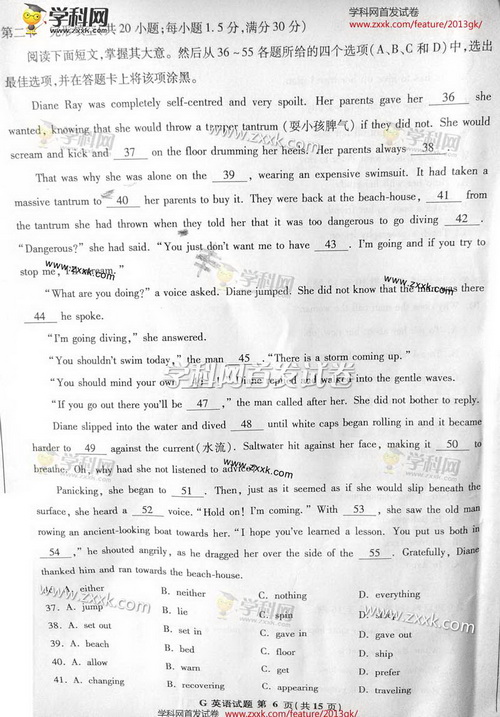 学科网首发试卷
http://www.zxxk.com/feature/2013gk/
学科网
www.zxxk.com
第二 共20小题;每小题1.5分,满分30分)
阅读下面短文,掌握其大意。然后从36~55各题所给的四个选项(A、B、C和D)中,选出
最佳选项,并在答题卡上将该项涂黑。
Diane Ray was completely self-centred and very spoilt. Her parents gave her 36 she
wanted, knowing that she would throw a temper tantrum (耍小孩脾气) if they did not. She would
scream and kick and 37 on the floor drumming her heels. Her parents always 38.
That was why she was alone on the 39, wearing an expensive swimsuit. It had taken a
massive tantrum to 40 her parents to buy it. They were back at the beach-house, 41 from
the tantrum she had thrown when they told her that it was too dangerous to go diving 42.
“Dangerous?” she had said. “You just don't want me to have 43. I'm going and if you try to
stop me, I'll scream.”
学科网
www.zxxk.com
“What are you doing?” a voice asked. Diane jumped. She did not know that the man was there
44 he spoke.
“I'm going diving,” she answered.
“You shouldn't swim today,” the man 45. “There is a storm coming up.”
学科网首发试卷
“You should mind your own Diane replied and walked into the gentle waves.
www.zxxk.com
“If you go out there you'll be 47,” the man called after her. She did not bother to reply.
Diane slipped into the water and dived 48 until white caps began rolling in and it became
harder to 49 against the current(水流). Saltwater hit against her face, making it 50 to
breathe. Oh, why she had not listened to advice
学科网
www.zxxk.com
Panicking, she began to 51. Then, just as it seemed as if she would slip beneath the
surface, she heard a 52 voice. “Hold on! I'm coming.” With 53, she saw the old man
rowing an ancient-looking boat towards her. “I hope you've learned a lesson. You put us both in
54,” he shouted angrily, as he dragged her over the side of the 55. Gratefully, Diane
thanked him and ran towards the beach-house.
36. A. either B. neither C. nothing D. everything
37. A. jump B. lie C. spin D. stay
38. A. set out B. set in C. gave in D. gave out
39. A. beach B. bed C. floor D. ship
40. A. allow B. warn C. get D. prefer
41. A. changing B. recovering C. appearing D. traveling
学科网
www.zxxk.com
学科网
www.zxxk.com
G 英语试题 第 6 页(共15页)
学科网首发试卷
http://www.zxxk.com/feature/2013gk/